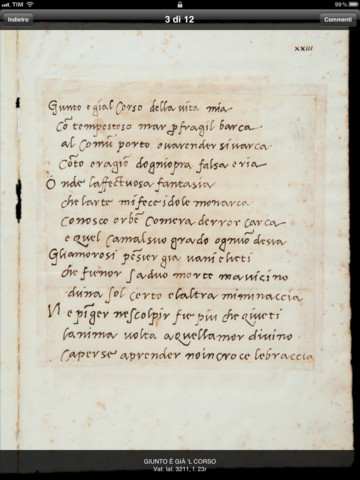 TIM
99%
Indietro
3 di 12
Commenti
xxiii
Giunto e gia l corso della vita mia
Cō tempestoso mar p fragil barca
al Comū porto ouarender si uarca
Cōto e ragiō dogniopra falsa eria
Onde laffectuosa fantasia
che larte mi fece idole monarca
Conosco orbē Comera derror carca
e quel camalsuo grado ogniuō desia
Gliamorosi pēsier gia uani e lieti
che fienor sa duo morte mauicino
duna so l certo e laltra mi minaccia
Ne pīger ne scolpir fie piu che queti
lanima uolta a quellamor diuino
caperse a prender noi in croce le braccia
GIUNTO È GIÀ 'L CORSO
Vat. lat. 3211, f. 23r